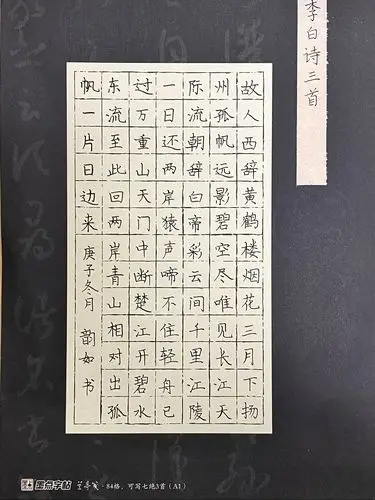 李白诗三首
故人西辞黄鹤楼烟花三月下扬
州孤帆远影碧空尽唯见长江天
际流朝辞白帝彩云间千里江陵
一日还两岸猿声啼不住轻舟已
过万重山天门中断楚江开碧水
东流至此回两岸青山相对出孤
帆一片日边来 庚子冬月 韵如书
墨点字帖 兰亭笺·84格,可写七绝3首(A1)